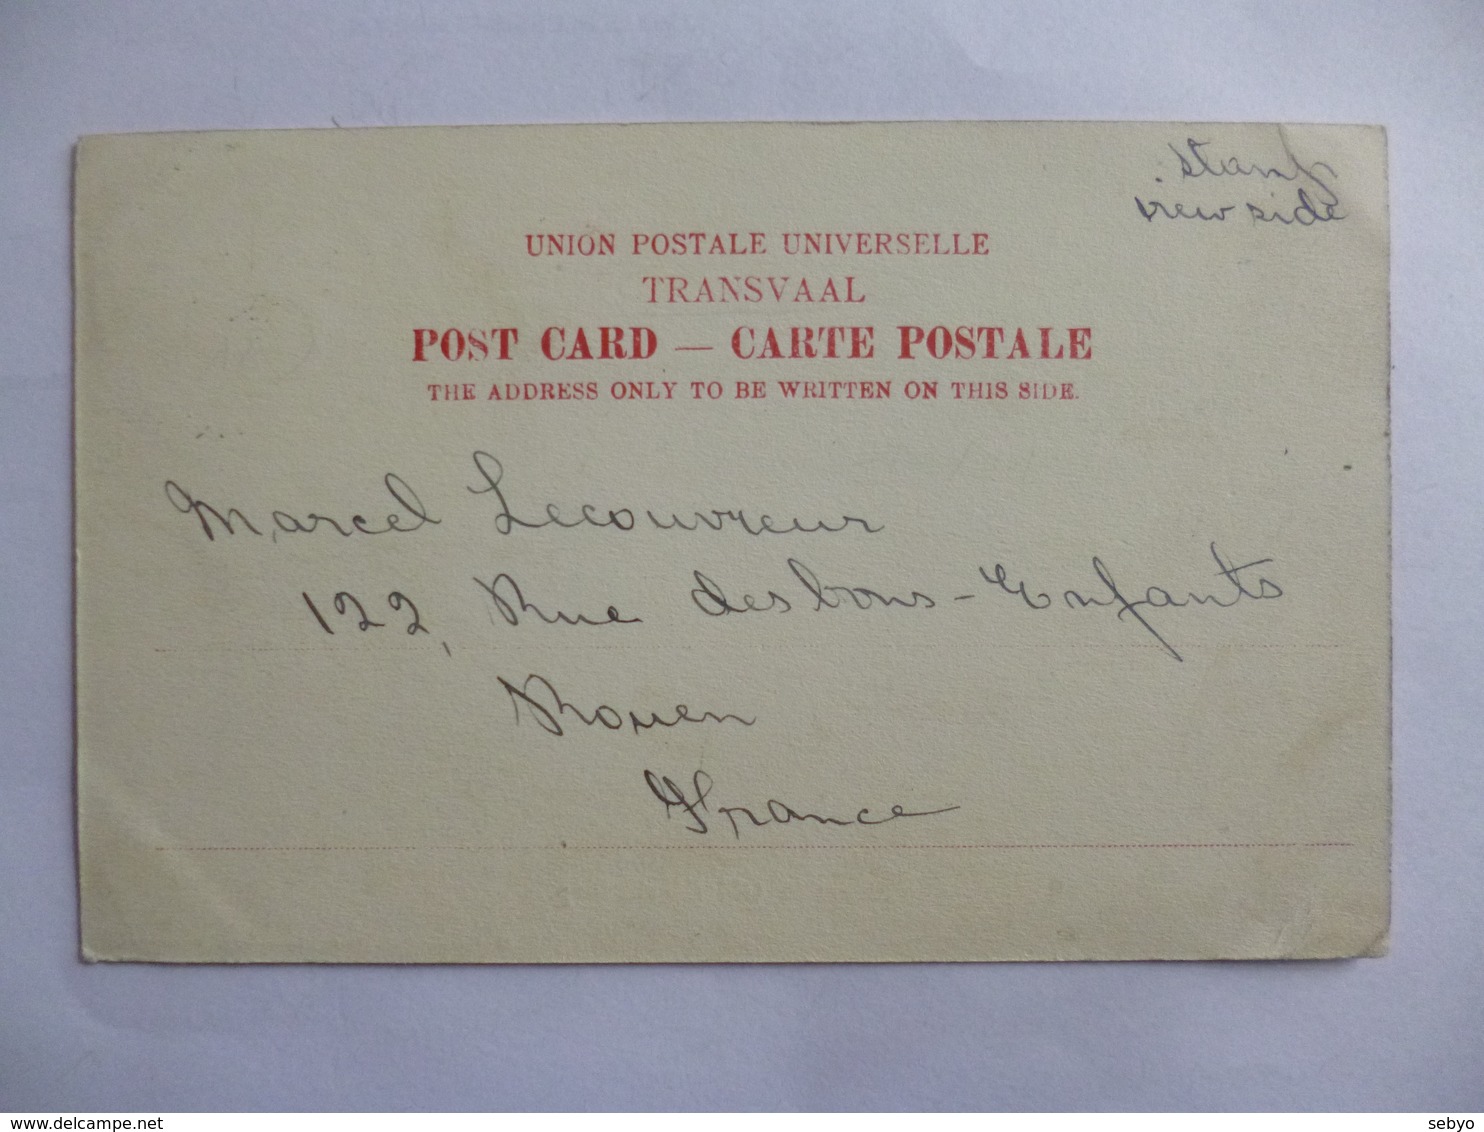 stamp
view side
UNION POSTALE UNIVERSELLE
TRANSVAAL
POST CARD — CARTE POSTALE
THE ADDRESS ONLY TO BE WRITTEN ON THIS SIDE.
Marcel Lecouvreur
122, Rue des bons-Enfants
Rouen
France
delcampe.net
sebyo